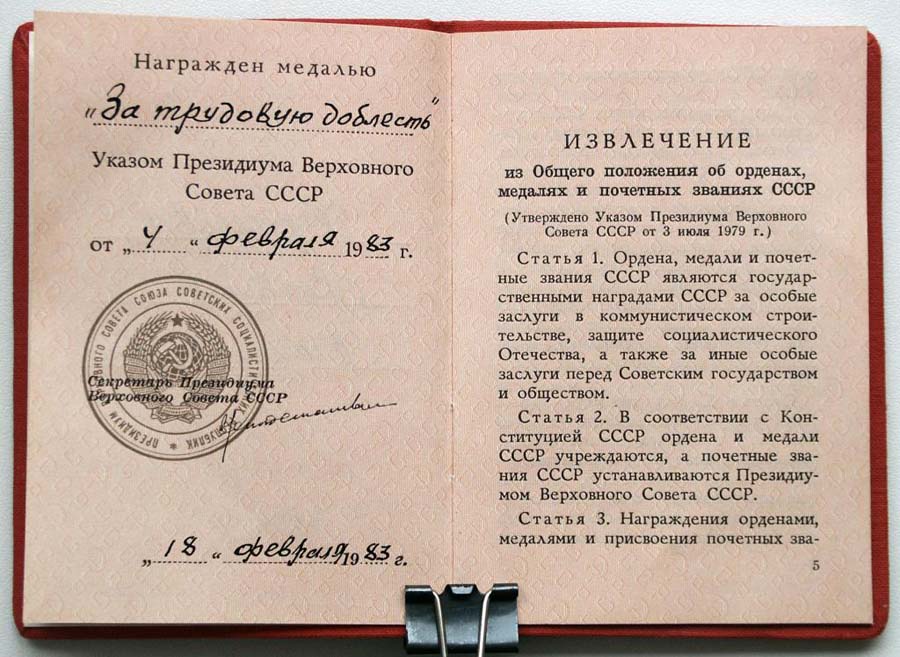 Награжден медалью
„За трудовую доблесть"
Указом Президиума Верховного
Совета СССР
от „4“ февраля 1983 г.
ПРЕЗИДИУМ ВЕРХОВНОГО СОВЕТА СОЮЗА СОВЕТСКИХ СОЦИАЛИСТИЧЕСКИХ РЕСПУБЛИК *
Секретарь Президиума
Верховного Совета СССР
„18“ февраля 1983 г.
ИЗВЛЕЧЕНИЕ
из Общего положения об орденах,
медалях и почетных званиях СССР
(Утверждено Указом Президиума Верховного
Совета СССР от 3 июля 1979 г.)
Статья 1. Ордена, медали и почет-
ные звания СССР являются государ-
ственными наградами СССР за особые
заслуги в коммунистическом строи-
тельстве, защите социалистического
Отечества, а также за иные особые
заслуги перед Советским государством
и обществом.
Статья 2. В соответствии с Кон-
ституцией СССР ордена и медали
СССР учреждаются, а почетные зва-
ния СССР устанавливаются Президиу-
мом Верховного Совета СССР.
Статья 3. Награждения орденами,
медалями и присвоения почетных зва-
5